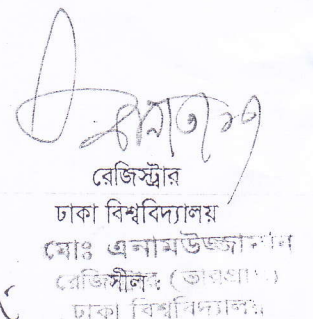 রেজিস্ট্রার
ঢাকা বিশ্ববিদ্যালয়
মোঃ এনামউজ্জামান
রেজিস্ট্রার (ভারপ্রাপ্ত)
সীল
ঢাকা বিশ্ববিদ্যালয়